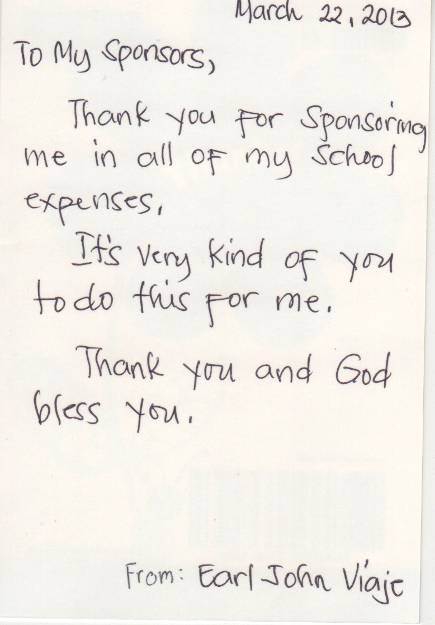 March 22, 2013
To My Sponsors,
Thank you for Sponsoring
me in all of my School
expenses.
It's very kind of you
to do this for me.
Thank you and God
bless you.
From: Earl John Viaje